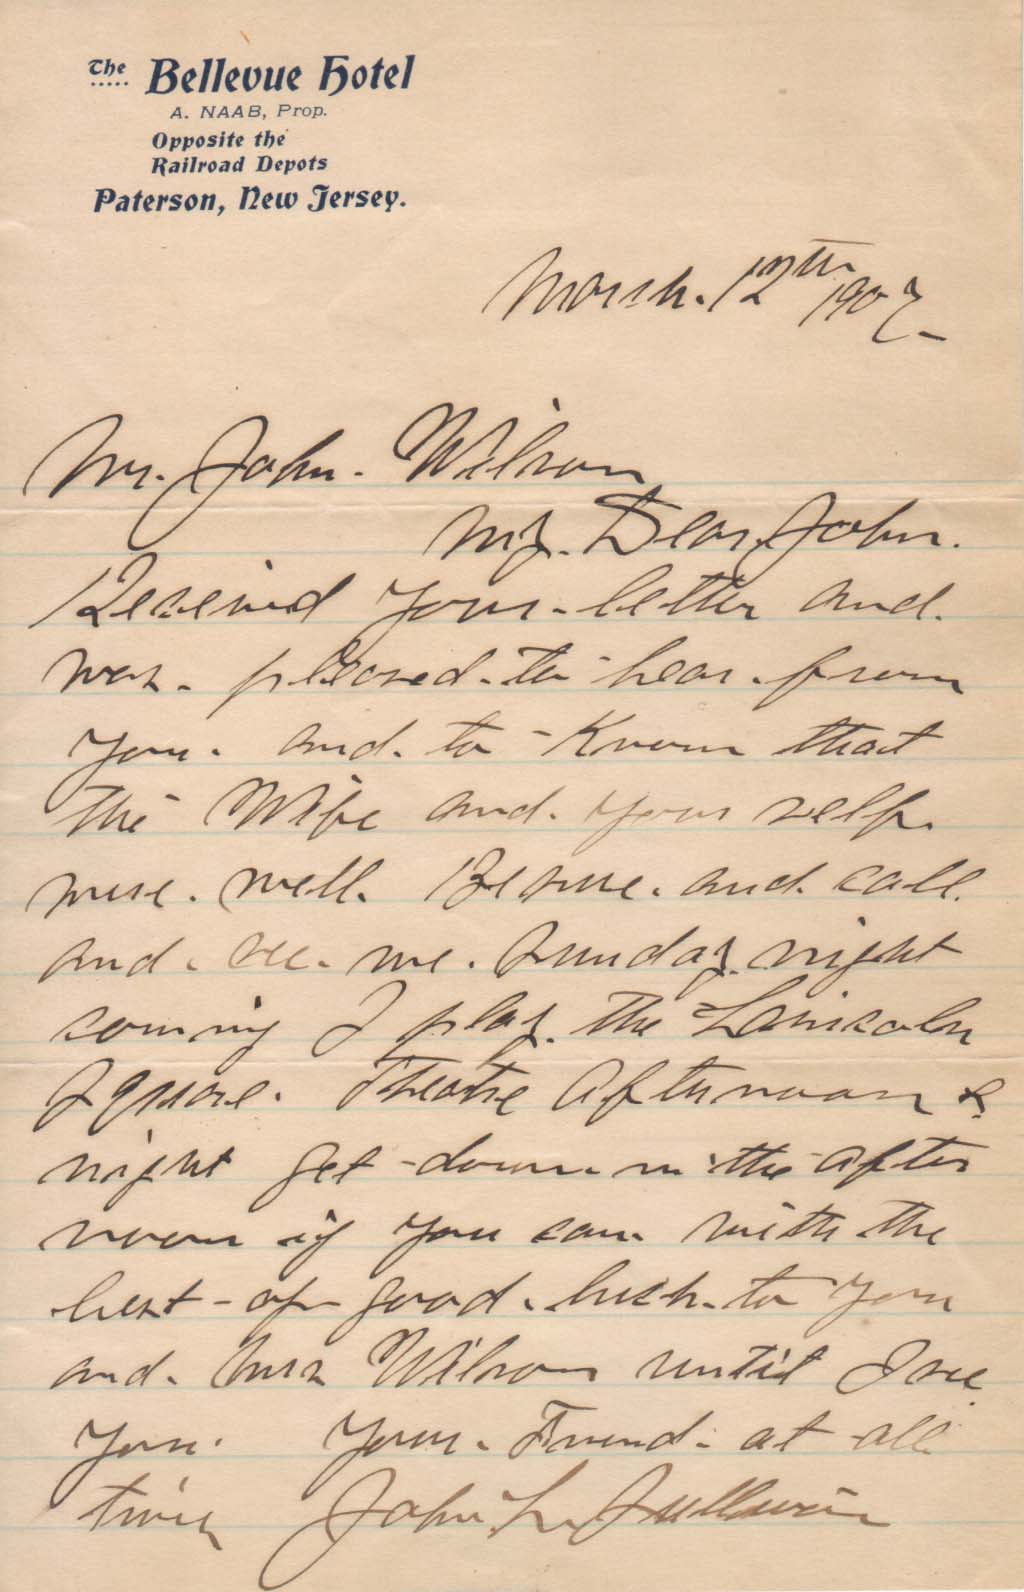 The Bellevue Hotel
A. NAAB, Prop.
Opposite the
Railroad Depots
Paterson, New Jersey.
March. 12th 1907.
Mr. John. Wilson
My. Dear John.
Received your letter and.
was. pleased. to hear. from
you. and. to Know that
the Wife and. your self.
were. well. Be sure. and. call.
and. see. me. Sunday. night
coming I play. the Lincoln
Square. Theatre afternoon &
night get down in the after
noon if you can. with the
best of good. luck. to you
and. Mrs Wilson until I see
you. Your. Friend. at all
times John L. Sullivan